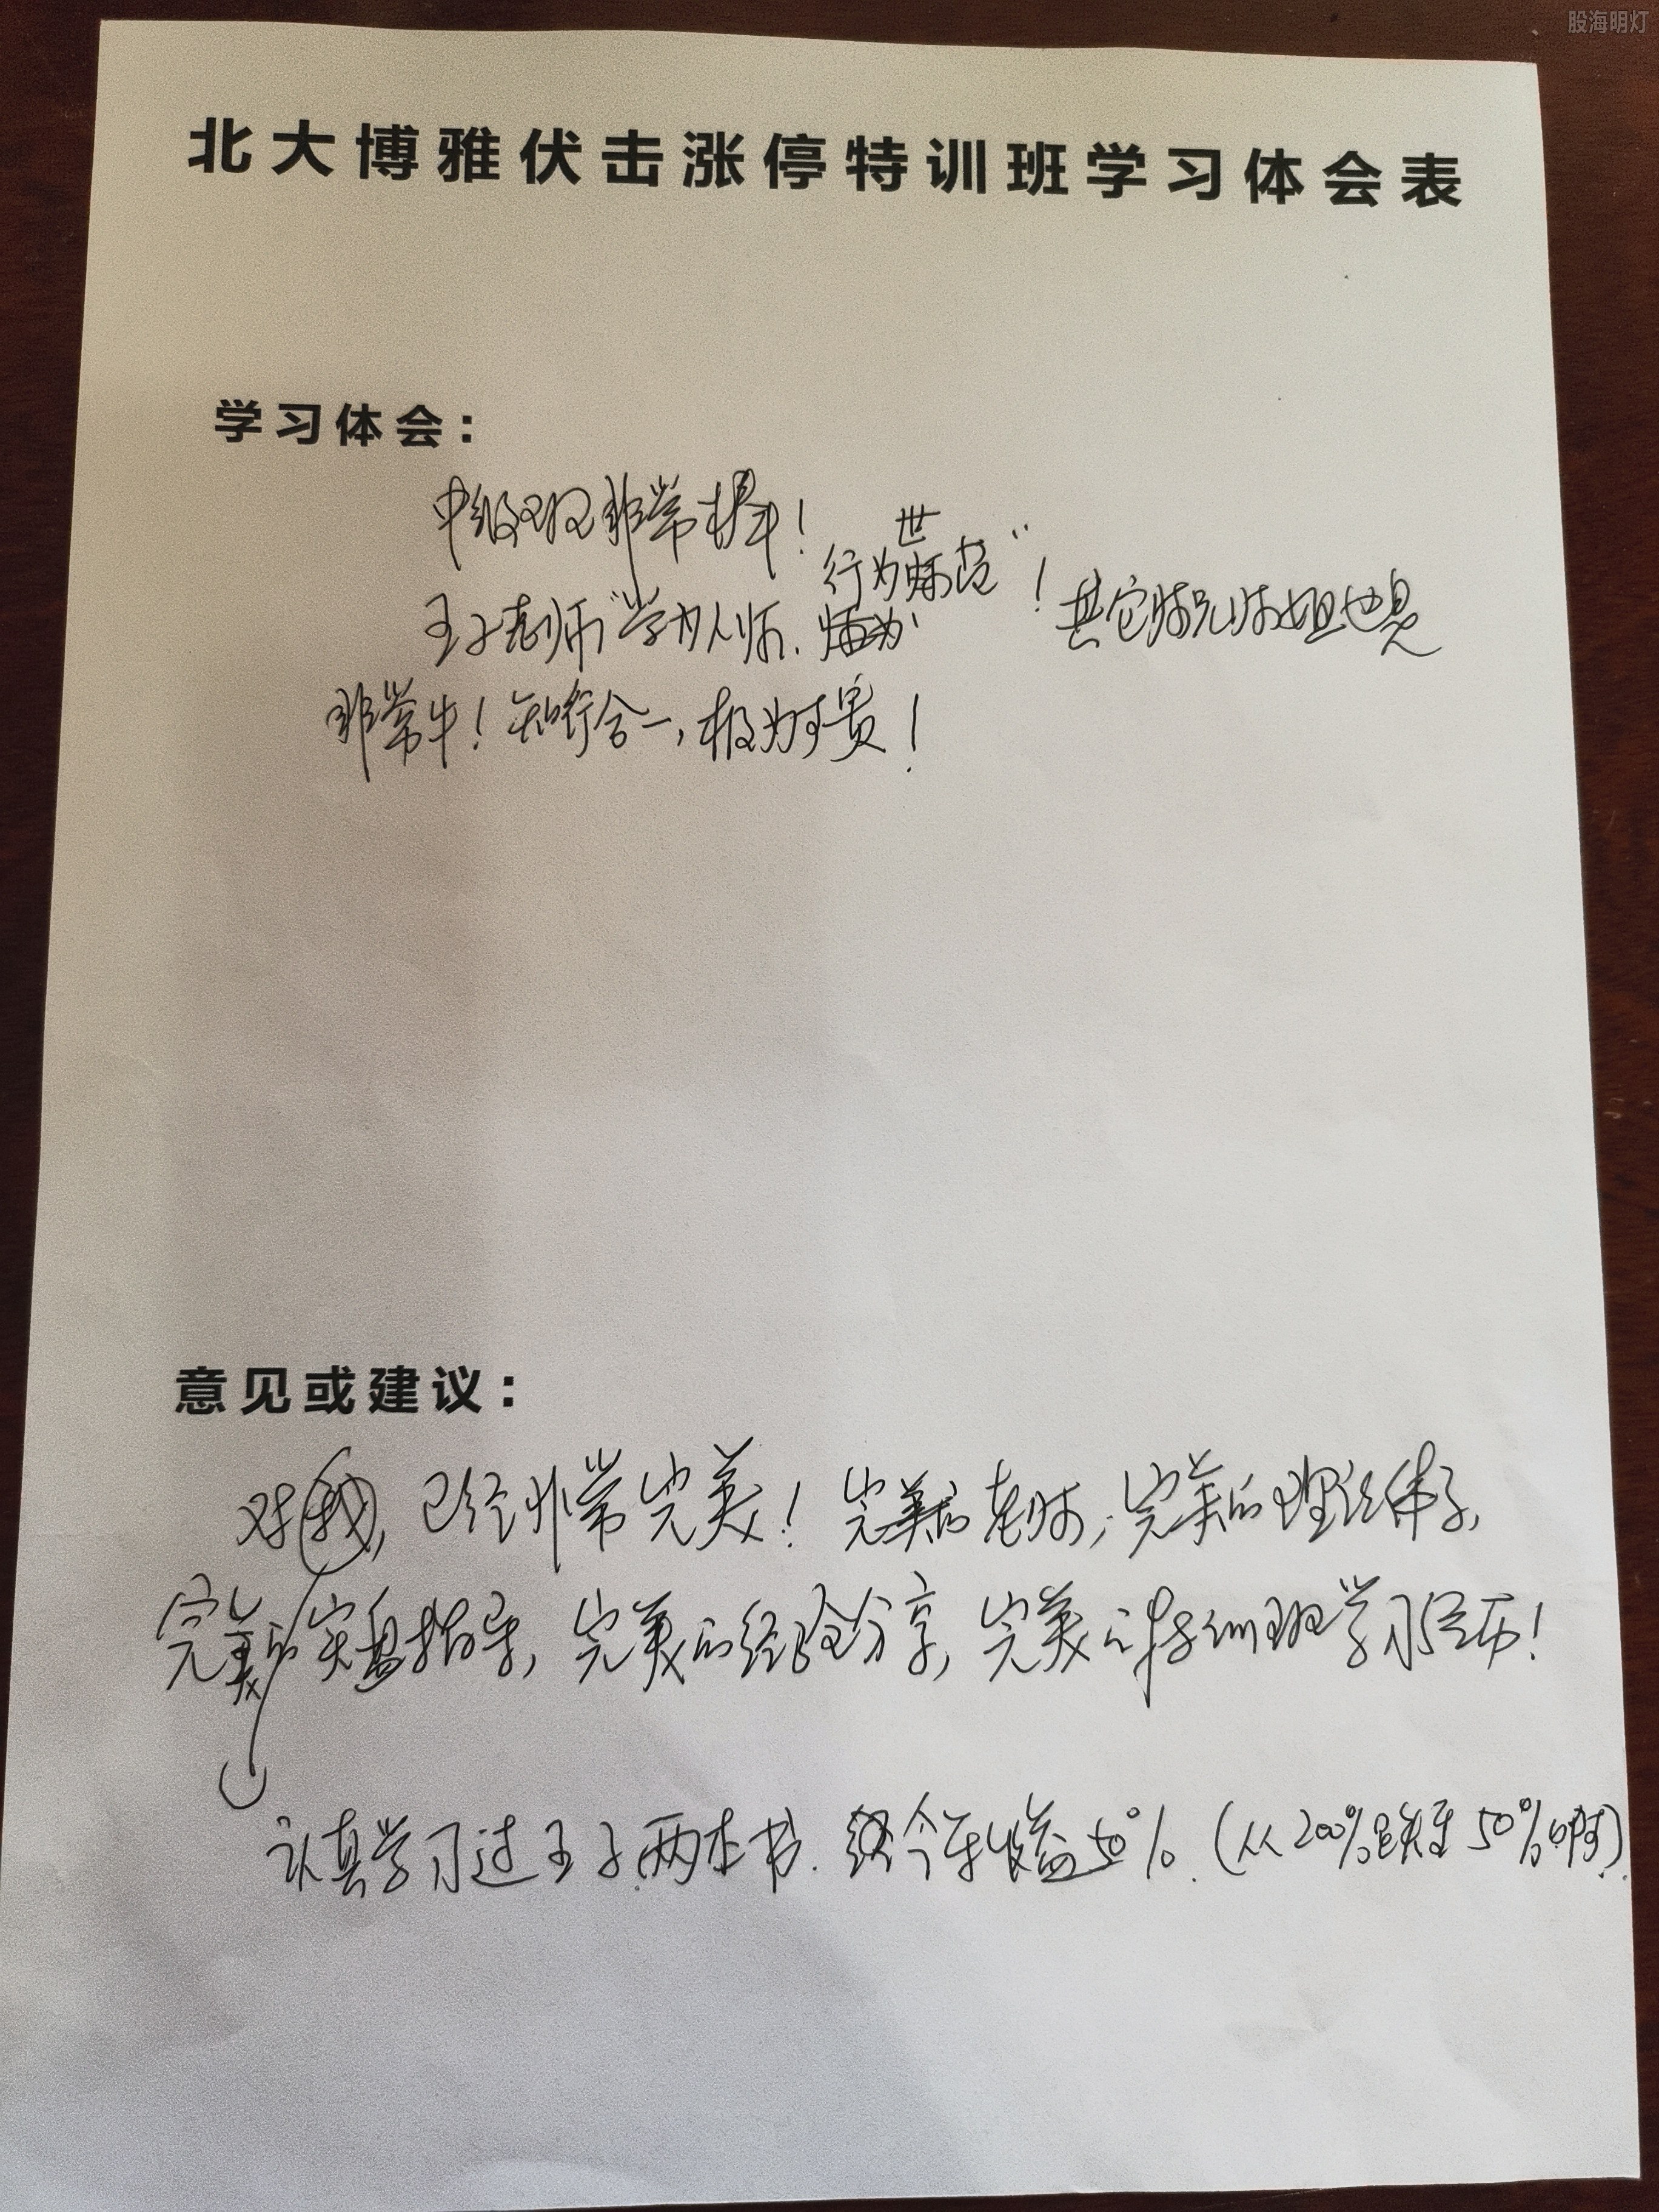 股海明灯
北大博雅伏击涨停特训班学习体会表
学习体会：
中级班非常棒！
王子老师“学为人师，行为世范”！其它师兄师姐也是
非常牛！知行合一，极为可贵！
意见或建议：
对我，已经非常完美！完美的老师，完美的理论体系，
完美的实盘指导，完美的经验分享，完美的特训班学习经历！
认真学习过王子两本书. 今年收益50%.（从200%跌至50%）